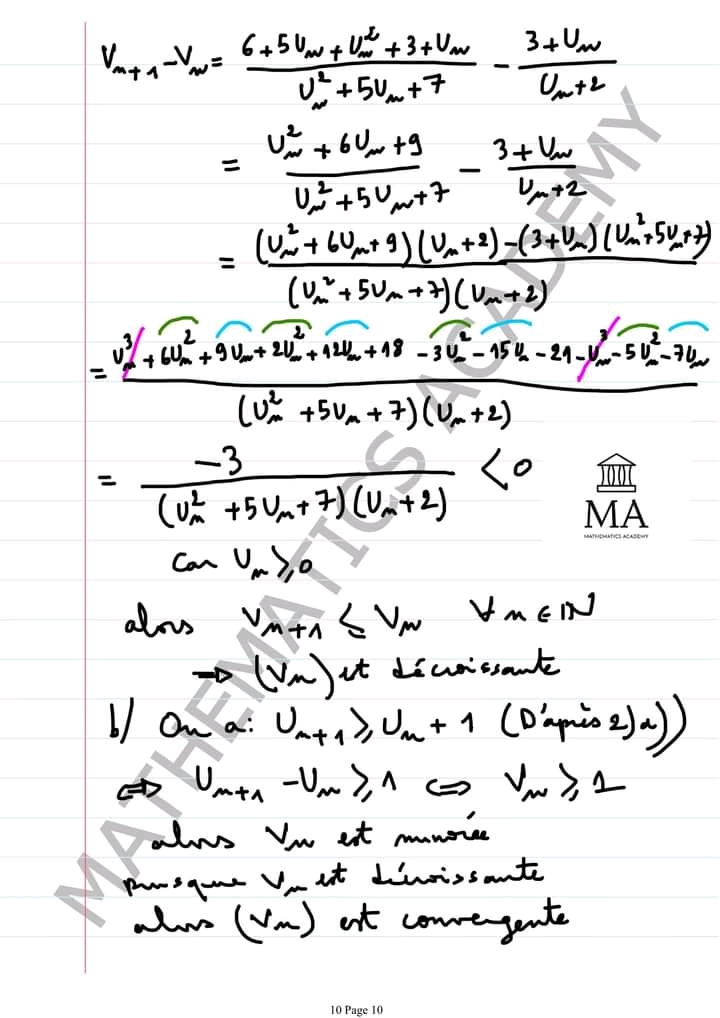 V_{n+1} - V_n = \frac{6+5U_n+U_n^2+3+U_n}{U_n^2+5U_n+7} - \frac{3+U_n}{U_n+2}
= \frac{U_n^2+6U_n+9}{U_n^2+5U_n+7} - \frac{3+U_n}{U_n+2}
= \frac{(U_n^2+6U_n+9)(U_n+2)-(3+U_n)(U_n^2+5U_n+7)}{(U_n^2+5U_n+7)(U_n+2)}
= \frac{U_n^3+6U_n^2+9U_n+2U_n^2+12U_n+18-3U_n^2-15U_n-21-U_n^3-5U_n^2-7U_n}{(U_n^2+5U_n+7)(U_n+2)}
= \frac{-3}{(U_n^2+5U_n+7)(U_n+2)} < 0
MA
MATHEMATICS ACADEMY
Car U_n ⩾ 0
alors V_{n+1} ⩽ V_n ∀ n ∈ IN
⇒ (V_n) est décroissante
b/ On a: U_{n+1} ⩾ U_n + 1 (D'après 2)a))
⇔ U_{n+1} - U_n ⩾ 1 ⇔ V_n ⩾ 1
alors V_n est minorée
puisque V_n est décroissante
alors (V_n) est convergente
MATHEMATICS ACADEMY
10 Page 10